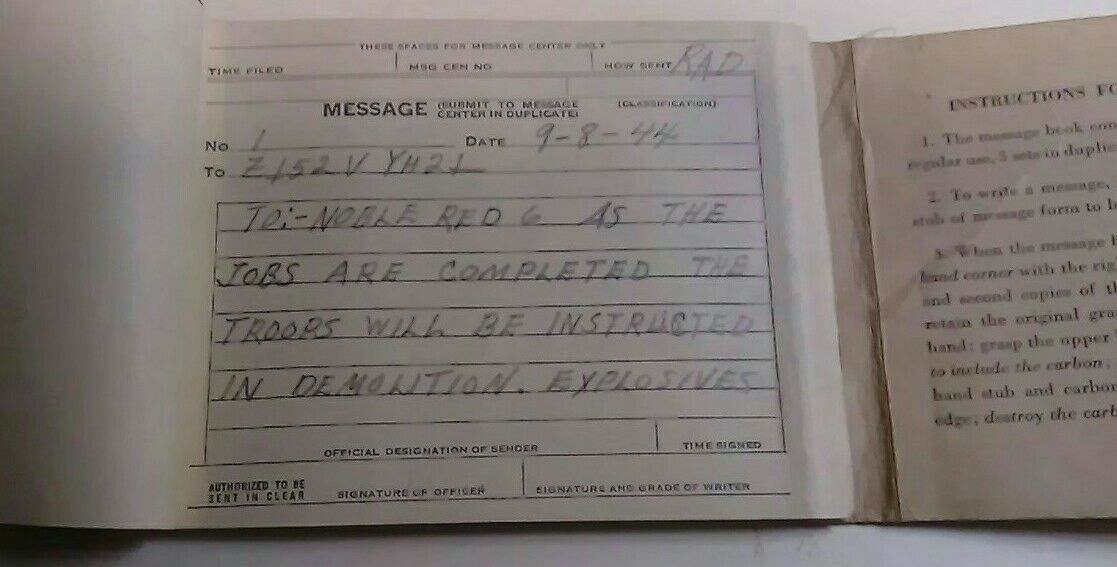 THESE SPACES FOR MESSAGE CENTER ONLY
TIME FILED MSG CEN NO HOW SENT RAD
MESSAGE (SUBMIT TO MESSAGE CENTER IN DUPLICATE) (CLASSIFICATION)
No 1 DATE 9-8-44
To Z152 V YH21
TO:- NOBLE RED 6 AS THE
JOBS ARE COMPLETED THE
TROOPS WILL BE INSTRUCTED
IN DEMOLITION. EXPLOSIVES
OFFICIAL DESIGNATION OF SENDER TIME SIGNED
AUTHORIZED TO BE SENT IN CLEAR SIGNATURE OF OFFICER SIGNATURE AND GRADE OF WRITER
INSTRUCTIONS FO
1. The message book con
regular use, 3 sets in duplic
2. To write a message,
stub of message form to b
3. When the message h
hand corner with the rig
and second copies of th
retain the original gra
hand; grasp the upper
to include the carbon,
hand stub and carbon
edge, destroy the carb